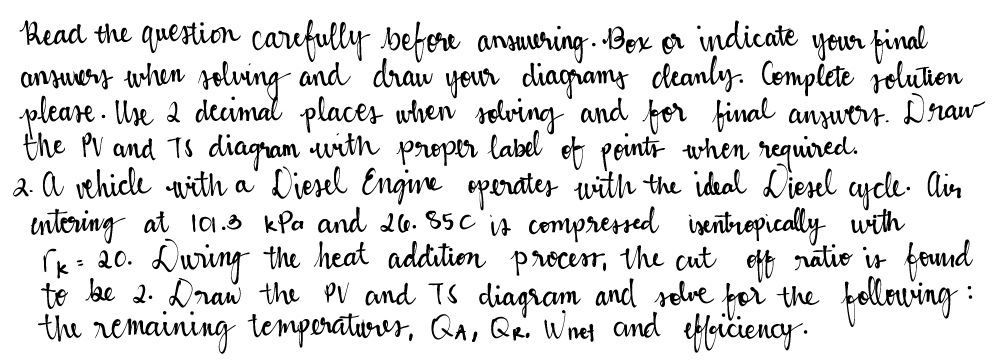 Read the question carefully before answering. Box or indicate your final
answers when solving and draw your diagrams cleanly. Complete solution
please. Use 2 decimal places when solving and for final answers. Draw
the PV and TS diagram with proper label of points when required.
2. A vehicle with a Diesel Engine operates with the ideal Diesel cycle. Air
entering at 101.3 kPa and 26.85C is compressed isentropically with
rk = 20. During the heat addition process, the cut off ratio is found
to be 2. Draw the PV and TS diagram and solve for the following:
the remaining temperatures, QA, QR. Wnet and efficiency.